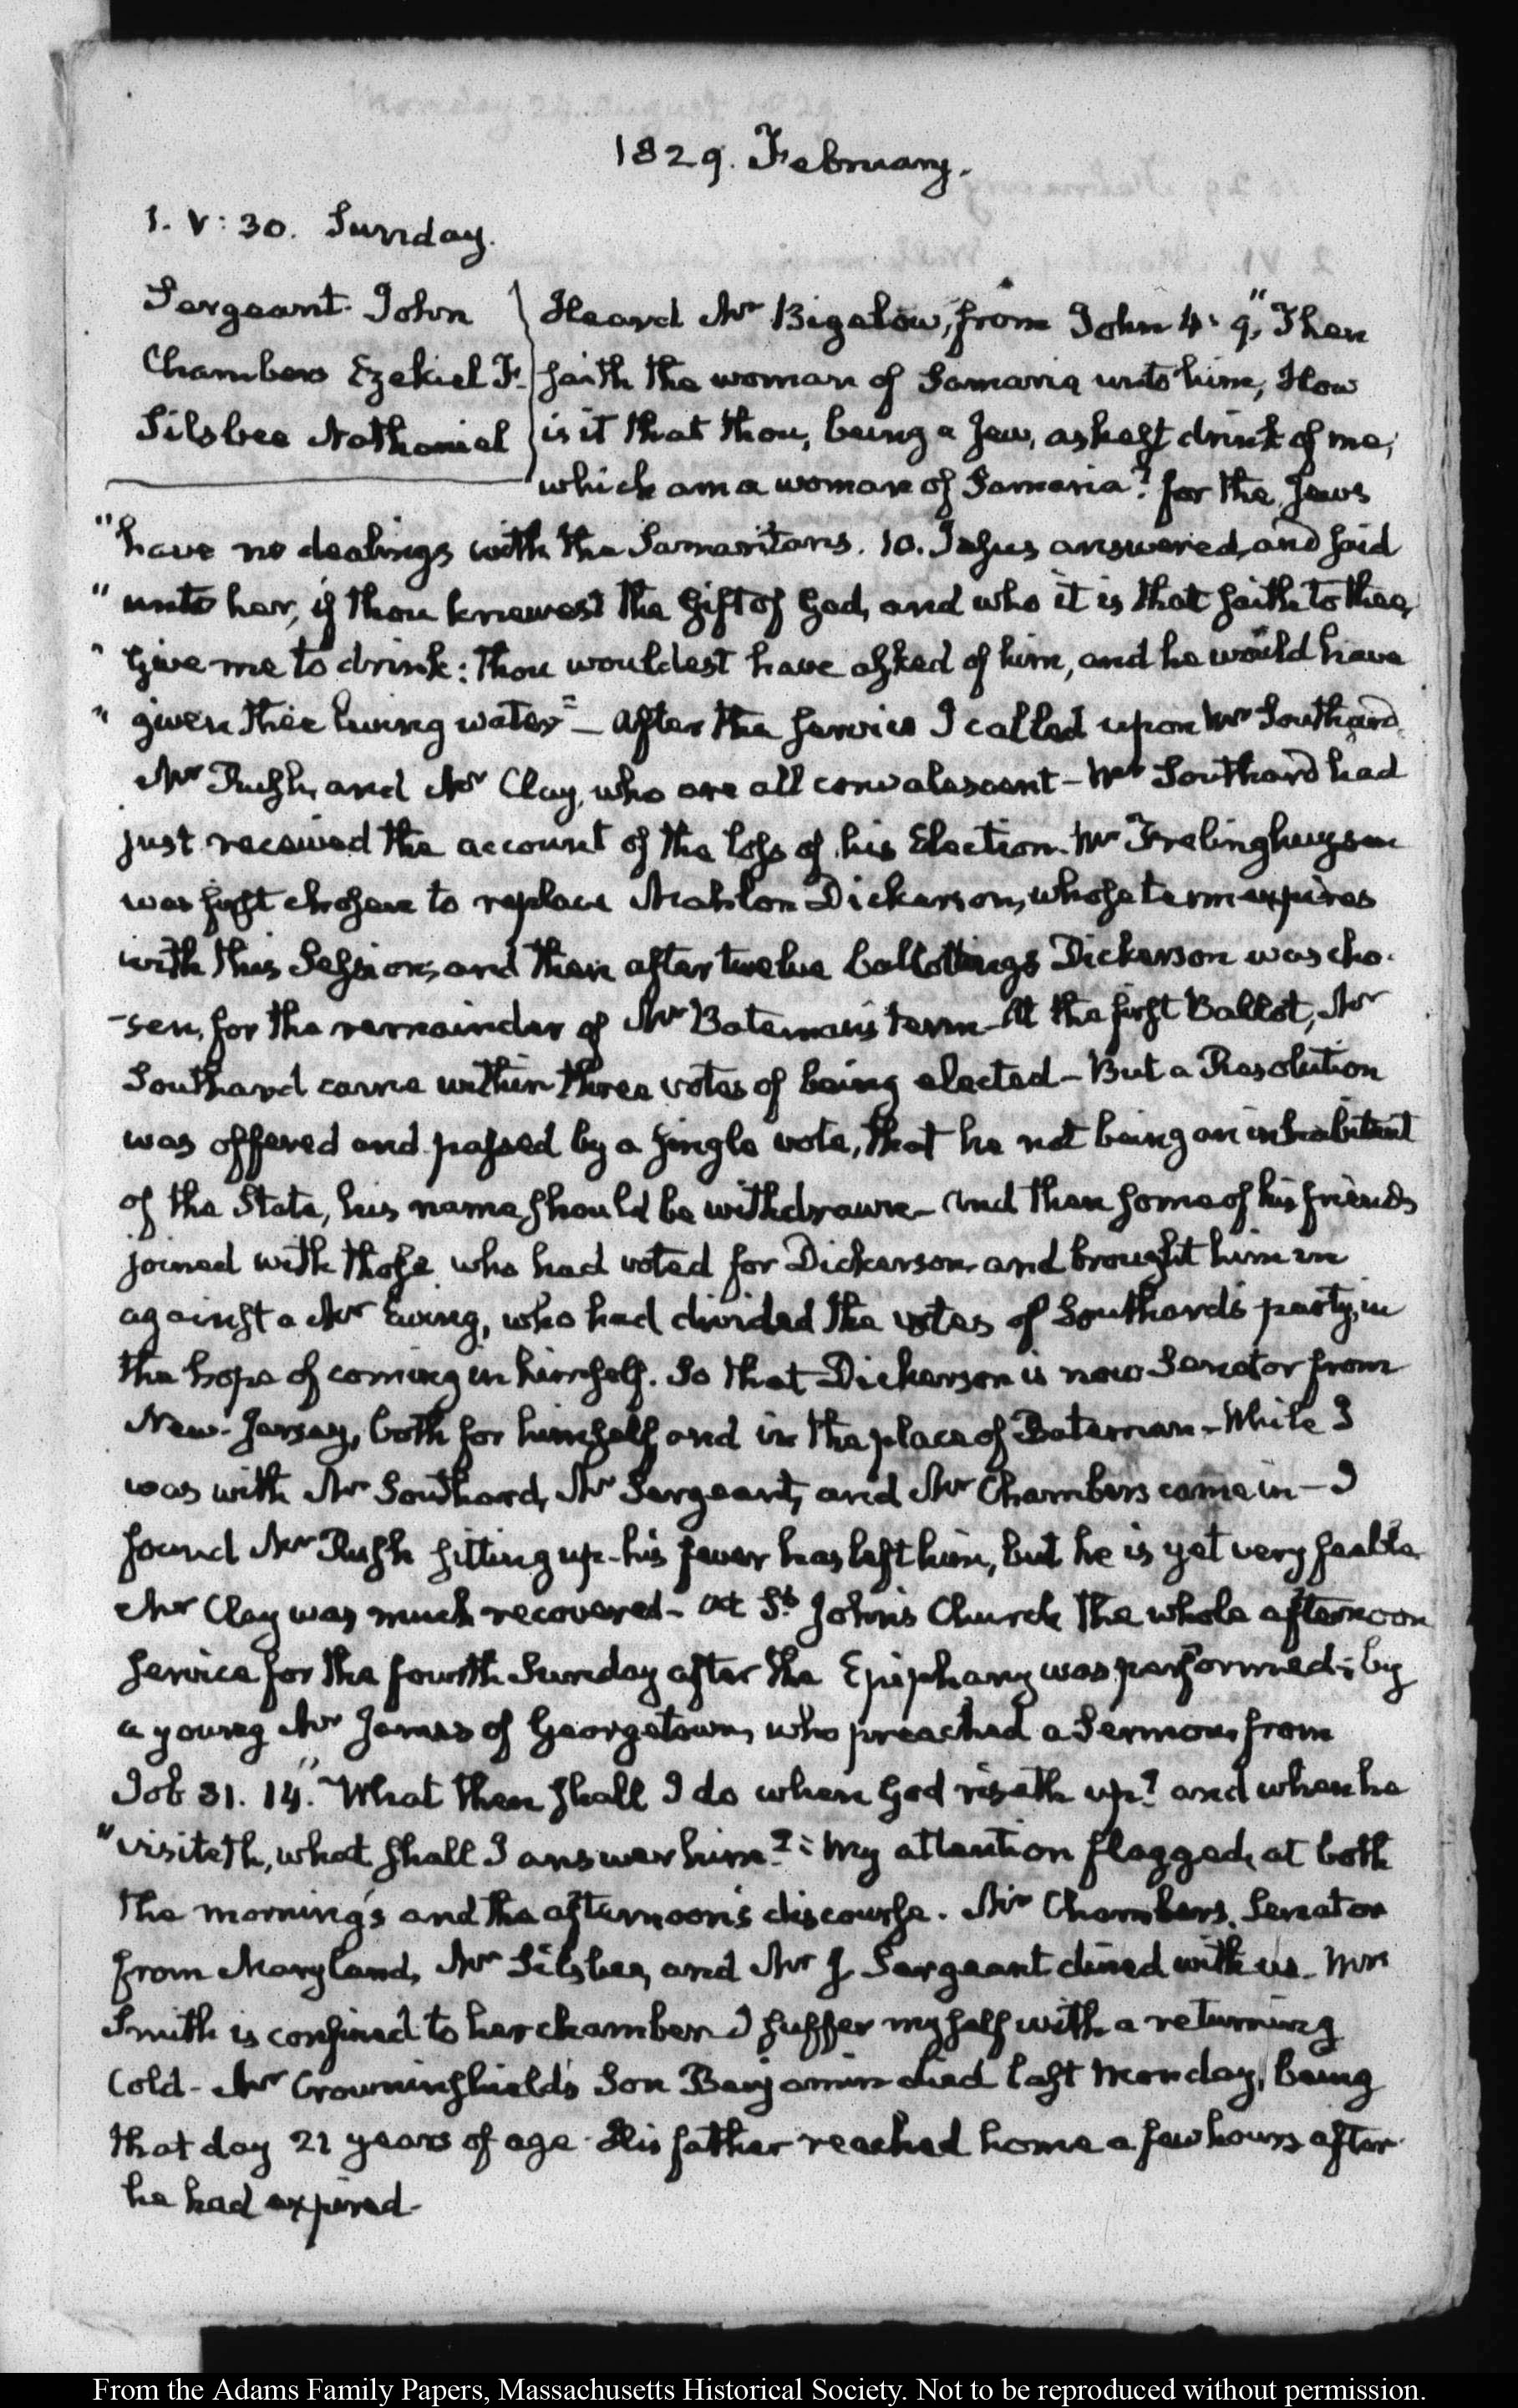 1829. February.
1. V: 30. Sunday.
Sergeant John
Chambers Ezekiel F.
Silsbee Nathaniel
Heard Mr Bigelow, from John 4: 9, "Then
saith the woman of Samaria unto him, How
is it that thou, being a Jew, askest drink of me,
which am a woman of Samaria? for the Jews
"have no dealings with the Samaritans. 10. Jesus answered, and said
"unto her, if thou knewest the Gift of God, and who it is that saith to thee,
"Give me to drink: thou wouldest have asked of him, and he would have
"given thee living water"— After the service I called upon Mr Southard
Mr Rush, and Mr Clay, who are all convalescent— Mr Southard had
just received the account of the loss of his Election. Mr Frelinghuysen
was first chosen to replace Mahlon Dickerson, whose term expires
with this Session, and then after twelve ballottings Dickerson was cho-
-sen, for the remainder of Mr Bateman's term— At the first Ballot, Mr
Southard came within three votes of being elected— But a Resolution
was offered and passed by a single vote, that he not being an inhabitant
of the State, his name should be withdrawn— And then some of his friends
joined with those who had voted for Dickerson and brought him in
against a Mr Ewing, who had divided the votes of Southard's party, in
the hope of coming in himself. So that Dickerson is now Senator from
New-Jersey, both for himself and in the place of Bateman— While I
was with Mr Southard, Mr Sergeant, and Mr Chambers came in— I
found Mr Rush sitting up— his fever has left him, but he is yet very feeble
Mr Clay was much recovered— At St. John's Church the whole afternoon
service for the fourth Sunday after the Epiphany was performed; by
a young Mr James of Georgetown, who preached a Sermon from
Job 31. 14. "What then shall I do when God riseth up? and when he
"visiteth, what shall I answer him?" My attention flagged, at both
the morning's and the afternoon's discourse. Mr Chambers, Senator
from Maryland, Mr Silsbee, and Mr J. Sergeant dined with us. Mrs
Smith is confined to her chamber I suffer myself with a returning
Cold— Mr Crowninshield's Son Benjamin died last Monday, being
that day 21 years of age. His father reached home a few hours after
he had expired—
From the Adams Family Papers, Massachusetts Historical Society. Not to be reproduced without permission.